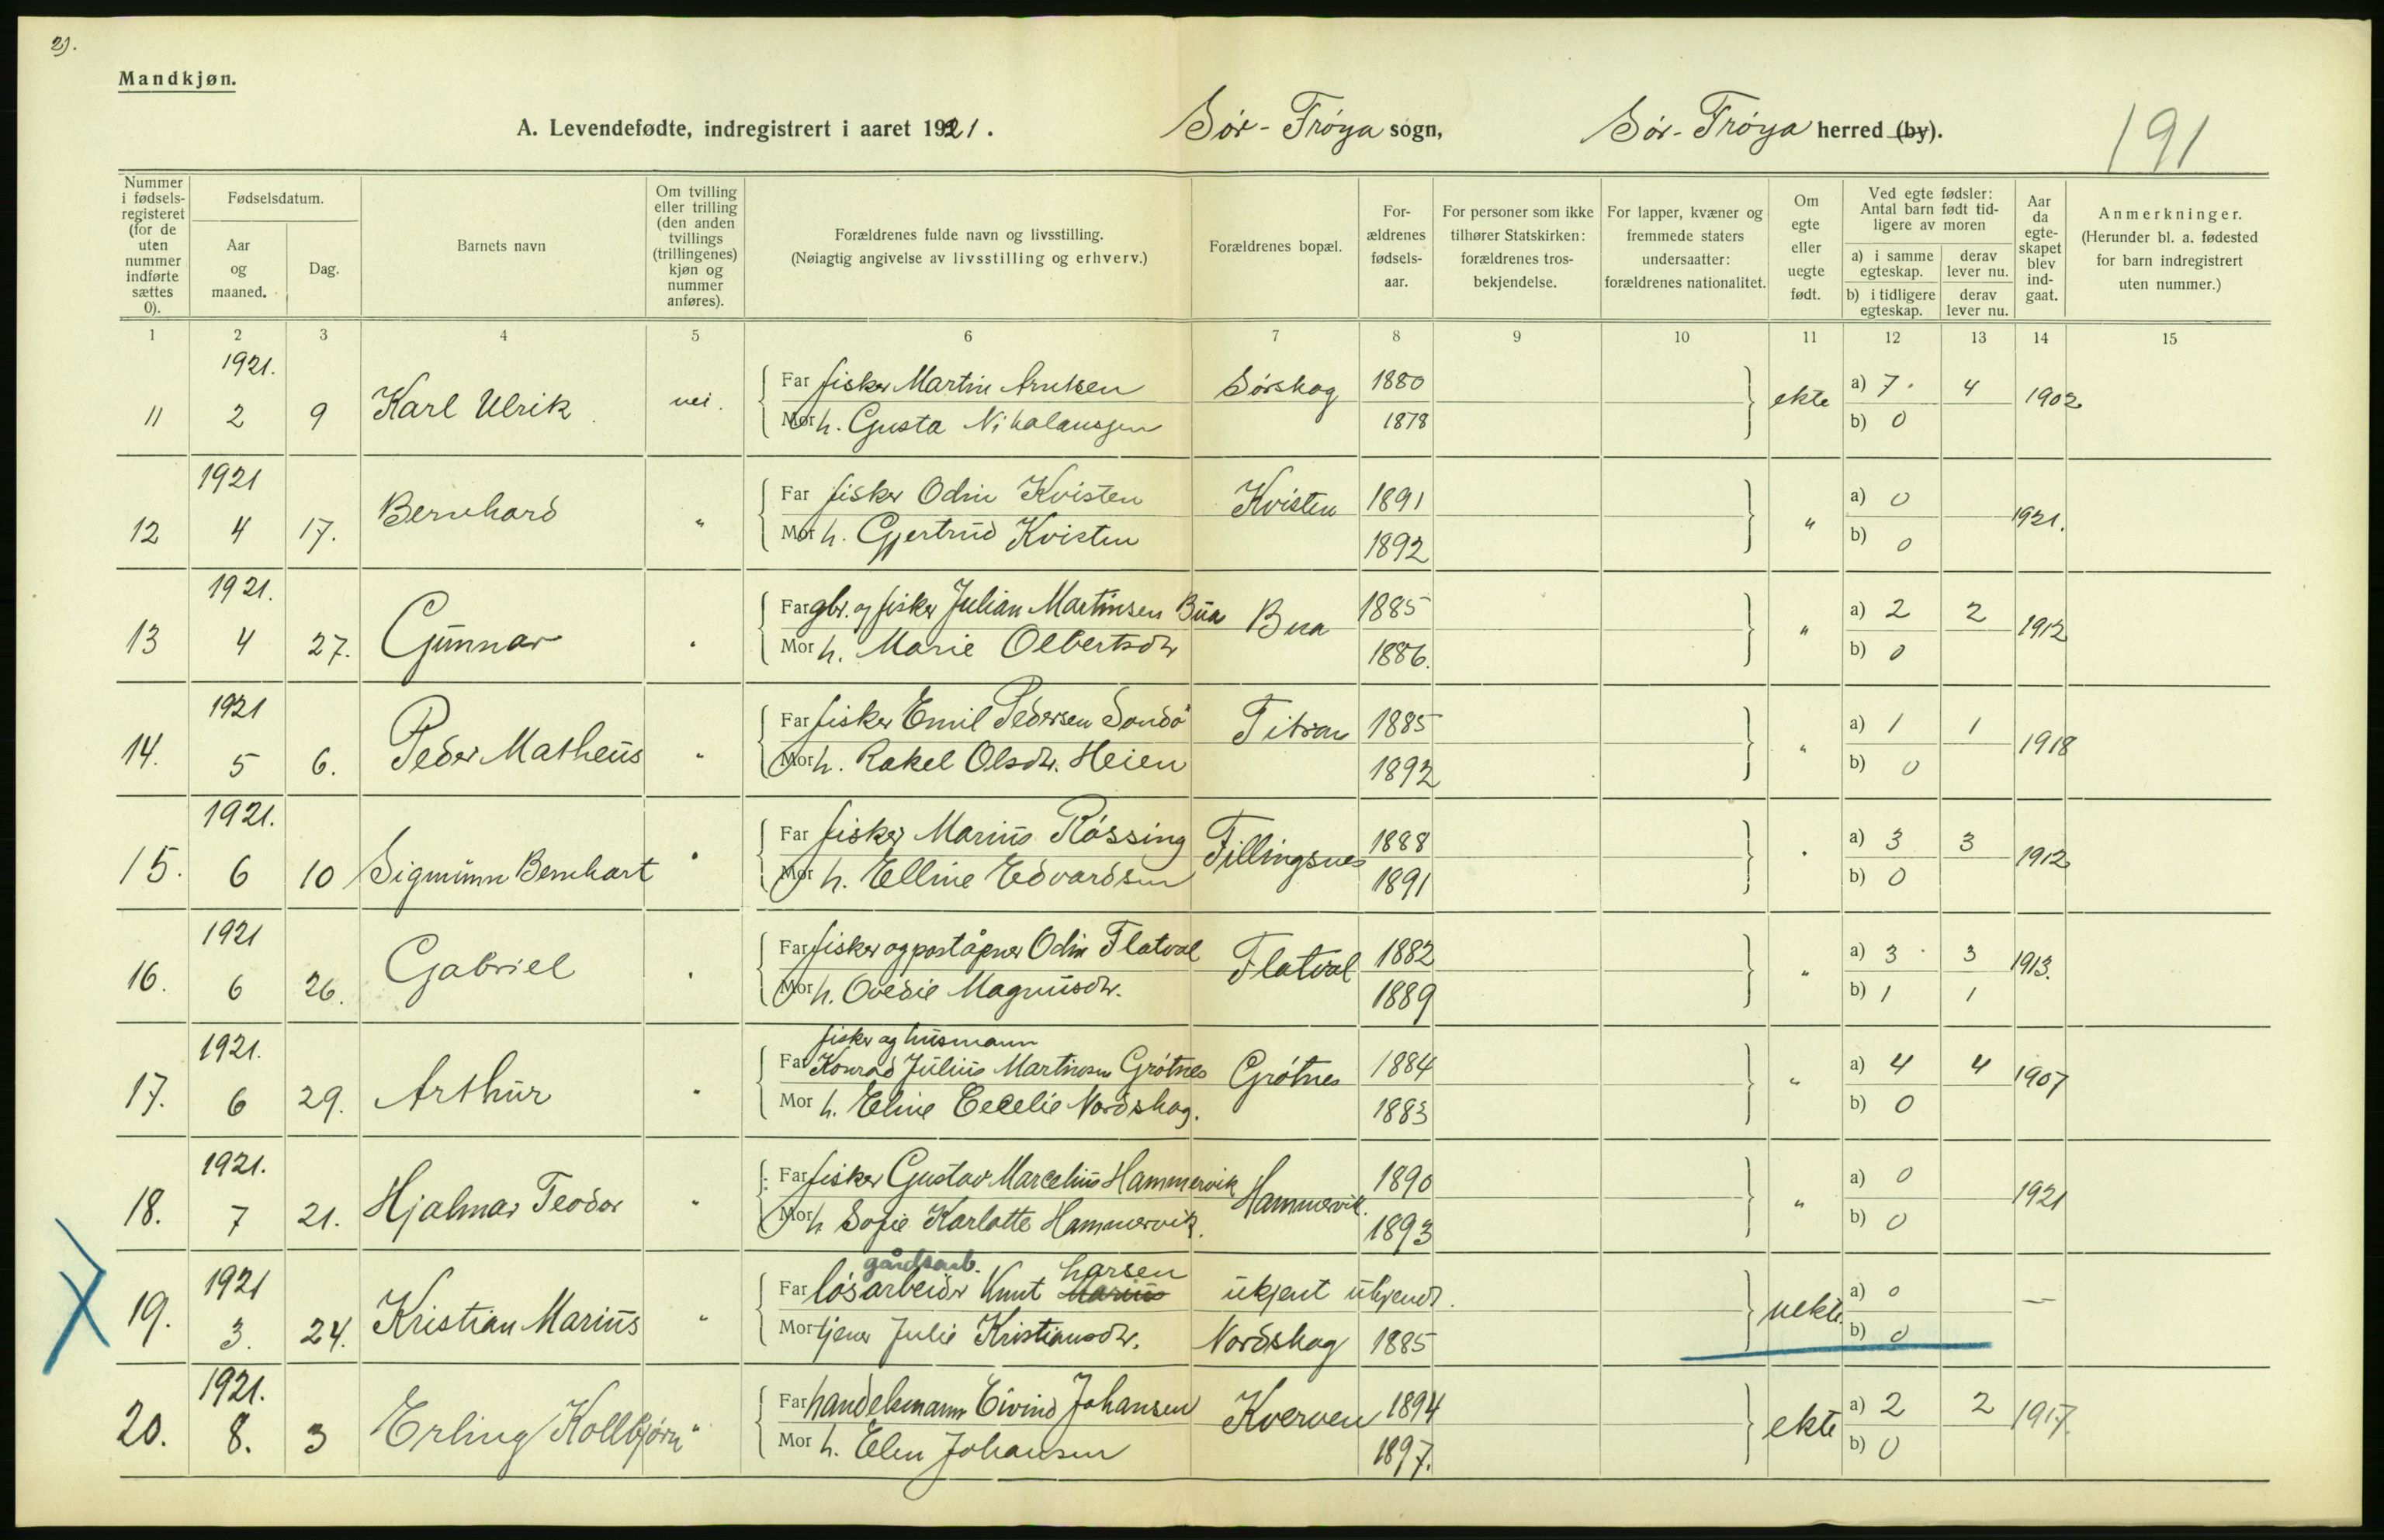 2).
Mandkjøn.
A. Levendefødte, indregistrert i aaret 1921. Sør-Frøya sogn, Sør-Frøya herred (by). 191
Nummer i fødselsregisteret (for de uten nummer indførte sættes 0). | Fødselsdatum. Aar og maaned. | Dag. | Barnets navn | Om tvilling eller trilling (den anden tvillings (trillingenes) kjøn og nummer anføres). | Forældrenes fulde navn og livsstilling. (Nøiagtig angivelse av livsstilling og erhverv.) | Forældrenes bopæl. | Forældrenes fødselsaar. | For personer som ikke tilhører Statskirken: forældrenes trosbekjendelse. | For lapper, kvæner og fremmede staters undersaatter: forældrenes nationalitet. | Om egte eller uegte født. | Ved egte fødsler: Antal barn født tidligere av moren a) i samme egteskap. b) i tidligere egteskap. | derav lever nu. derav lever nu. | Aar da egteskapet blev indgaat. | Anmerkninger. (Herunder bl. a. fødested for barn indregistrert uten nummer.)
1 2 3 4 5 6 7 8 9 10 11 12 13 14 15
1921.
11 2 9 Karl Ulrik nei. Far fisker Martin Arntsen Sørskag 1880 ekte a) 7. 4 1902
Mor h. Gusta Nikolaussen 1878 b) 0
1921
12 4 17. Bernhard " Far fisker Odin Kvisten Kvisten 1891 " a) 0 1921.
Mor h. Gjertrud Kvisten 1892 b) 0
1921.
13 4 27. Gunnar " Far gbr. og fisker Julian Martinsen Bua Bua 1885 " a) 2 2 1912
Mor h. Marie Olbertsdtr 1886. b) 0
1921
14. 5 6. Peder Matheus " Far fisker Emil Pedersen Sandø Titran 1885 " a) 1 1 1918
Mor h. Rakel Olsdtr. Heien 1892 b) 0
1921.
15. 6 10 Sigmunn Bernhart " Far fisker Marius Røssing Fillingsnes 1888 " a) 3 3 1912
Mor h. Elline Edvardsen 1891 b) 0
1921
16. 6 26. Gabriel " Far fisker og poståpner Odin Flatval Flatval 1882 " a) 3 3 1913.
Mor h. Ovedie Magnusdtr. 1889 b) 1 1
1921. fisker og husmann
17. 6 29. Arthur " Far Konrad Julius Martinsen Grøtnes Grøtnes 1884 " a) 4 4 1907
Mor h. Eline Cecelie Nordskag. 1883 b) 0
1921.
18. 7 21. Hjalmar Teodor " Far fisker Gustav Marcelius Hammervik Hammervik. 1890 " a) 0 1921
Mor h Sofie Karlotte Hammervik. 1893 b) 0
1921 gårdsarb. Larsen
19. 3. 24. Kristian Marius " Far løsarbeidr Knut Marius ukjent ukjendt. uekte. a) 0 —
Mor tjener Julie Kristiansdtr. Nordskag 1885 b) 0
1921.
20. 8. 3 Erling Kollbjørn " Far handelsmann Eivind Johansen Kverven 1894 ekte a) 2 2 1917.
Mor h. Elen Johansen 1897. b) 0